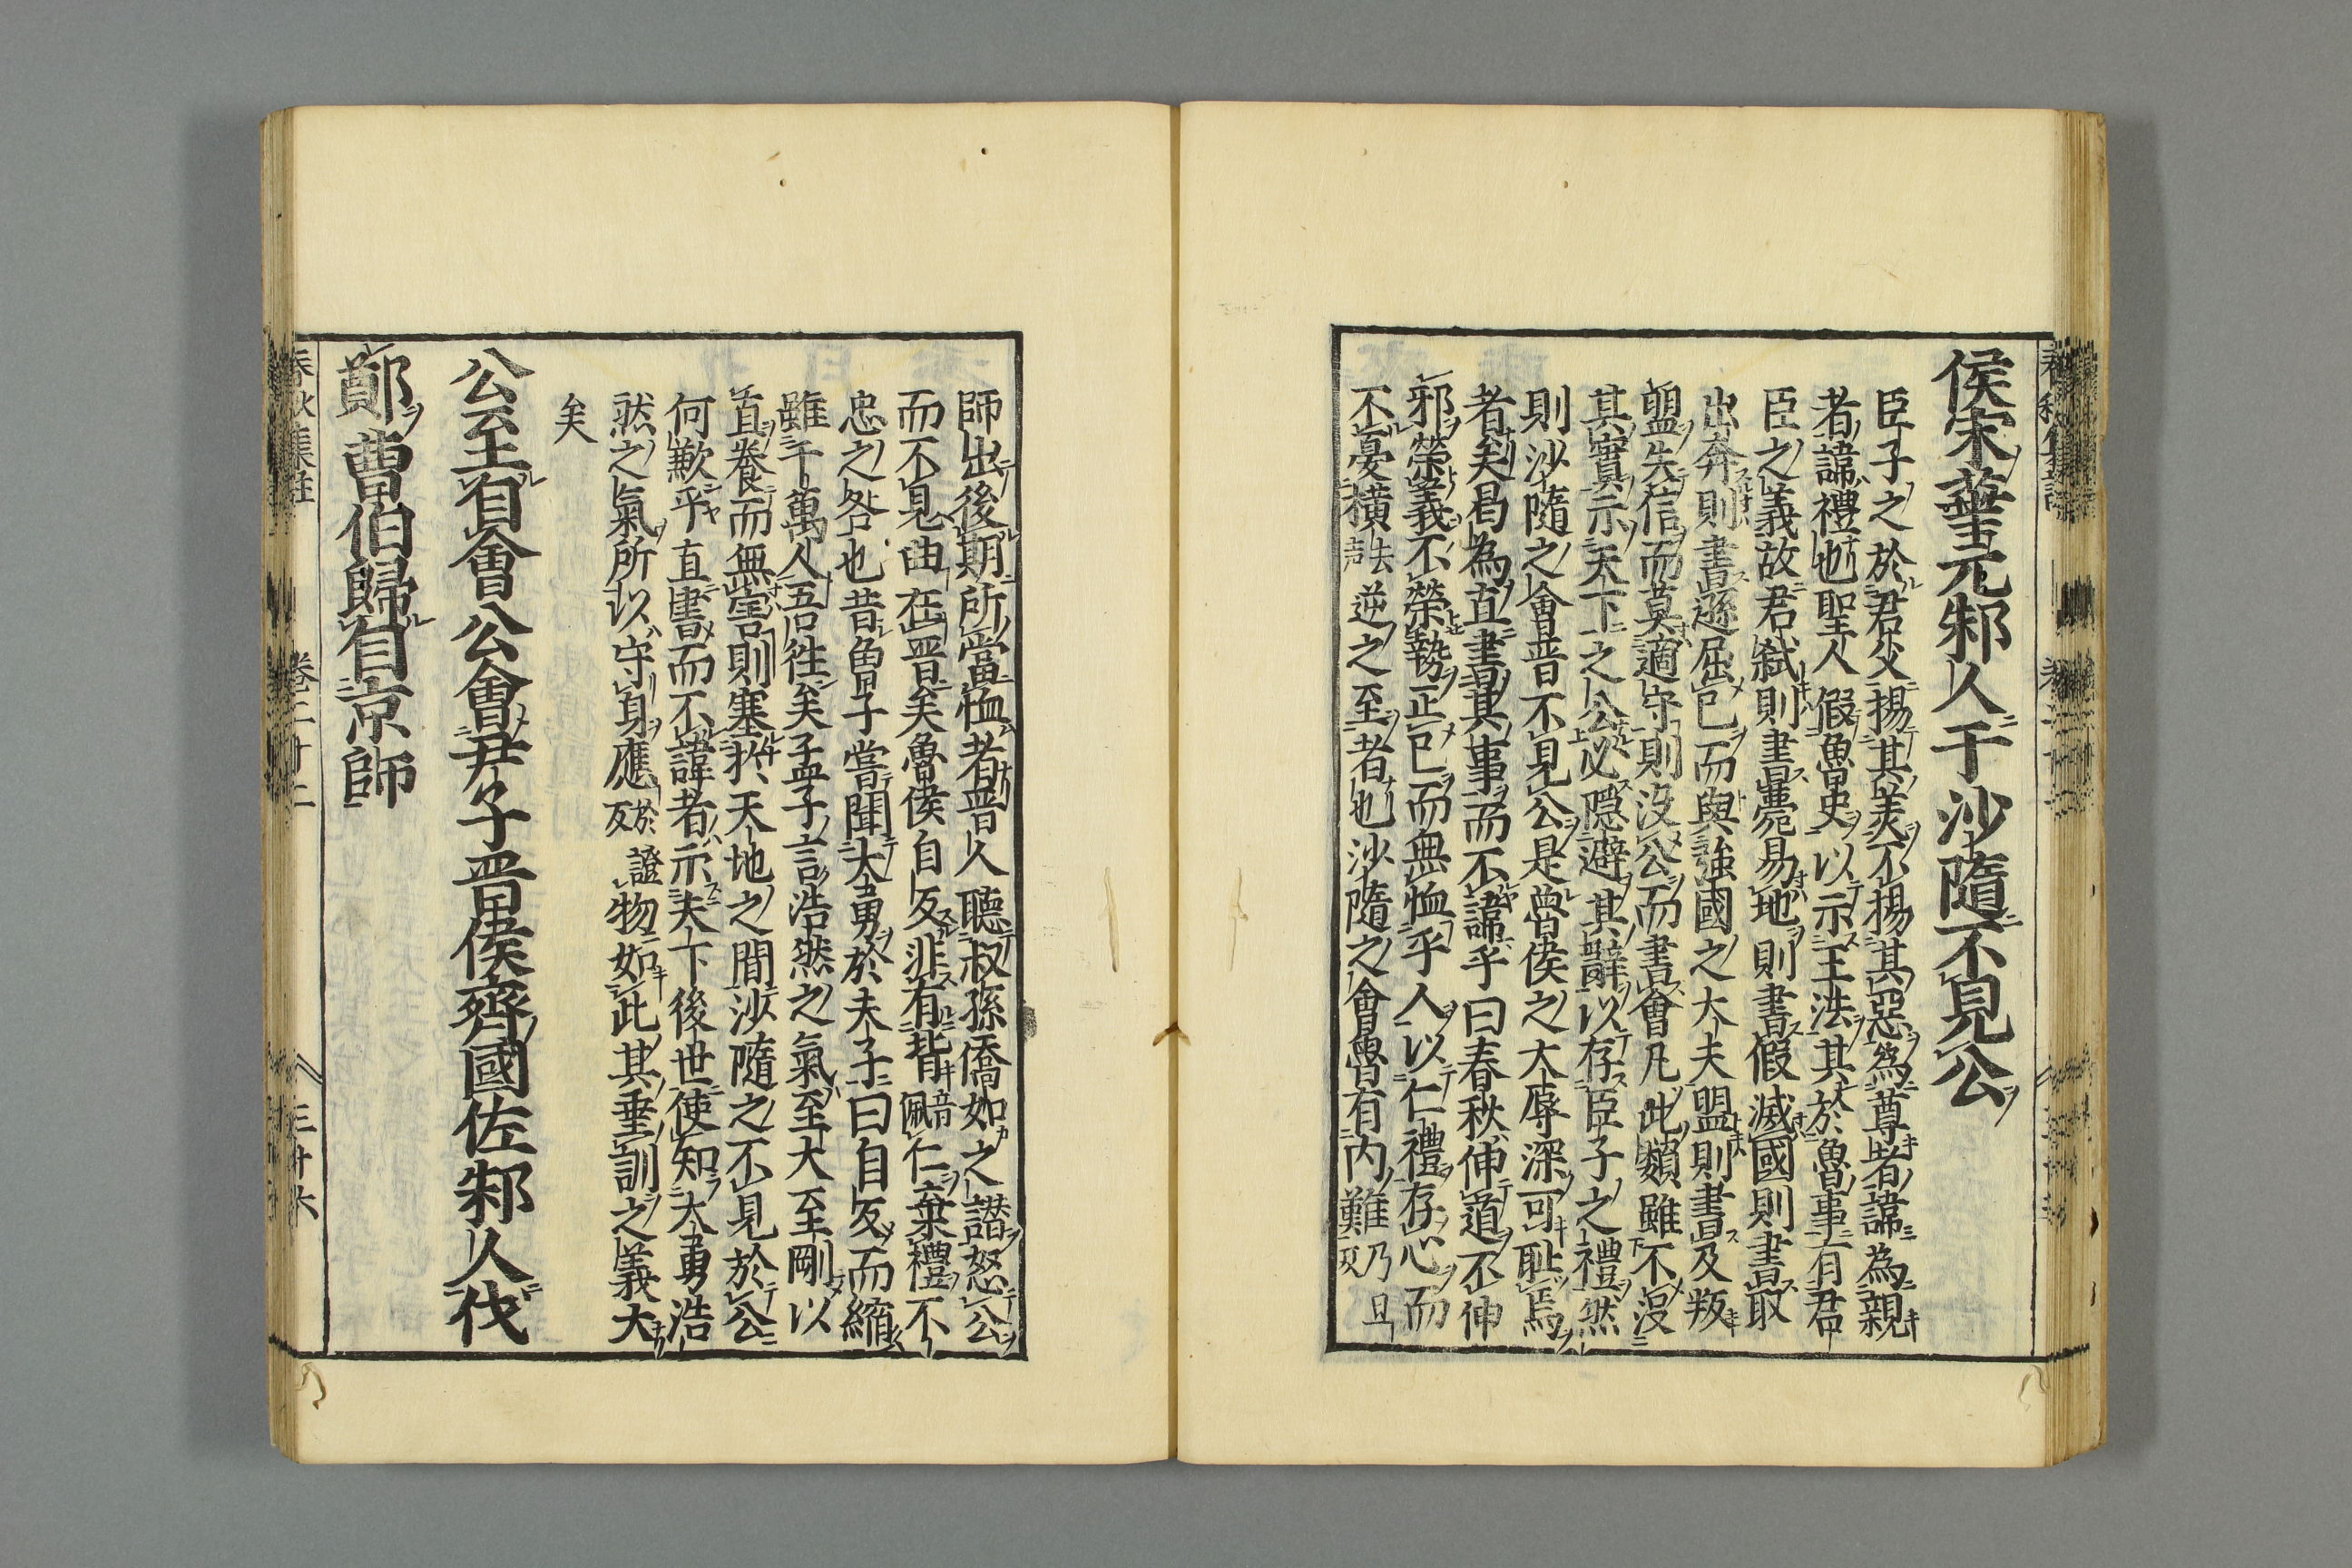 侯宋華元邾人于沙隨不見公
臣子之於君父揚其美不揚其惡為尊者諱為親
者諱禮也聖人假魯史以示王法其於魯事有君
臣之義故君弑則書薨易地則書假滅國則書取
出奔則書遜屈已而與強國之大夫盟則書及叛
盟失信而莫適守則沒公而書會凡此類雖不沒
其實示天下之公必隱避其辭以存臣子之禮然
則沙隨之會晉不見公是魯侯之大辱深可恥焉
者矣曷為直書其事而不諱乎曰春秋伸道不伸
邪榮義不榮勢正已而無恤乎人以仁禮存心而
不憂橫去聲逆之至者也沙隨之會魯有內難乃旦反
師出後期所當恤者晋人聽叔孫僑如之譖怒公
而不見曲在晋矣魯侯自反非有背音佩仁棄禮不
忠之咎也昔曾子嘗聞大勇於夫子曰自反而縮
雖千萬人吾往矣孟子言浩然之氣至大至剛以
直養而無害則塞於天地之間沙隨之不見於公
何歉乎直書而不諱者示天下後世使知大勇浩
然之氣所以守身應於證反物如此其垂訓之義大
矣
公至自會公會尹子晋侯齊國佐邾人伐
鄭曹伯歸自京師
春秋集註 卷二十二 三十六